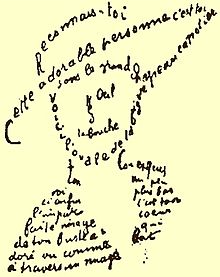 Reconnais-toi
Cette adorable personne c'est toi
sous le grand chapeau canotier
Œil
Nez
la bouche
Voici l'ovale de ta figure
ton
cou exquis
voi
ci enfin
l'impar
faite image
de ton buste a
doré vu comme
à travers un nuage
un peu
plus bas
c'est ton
cœur
qui
bat